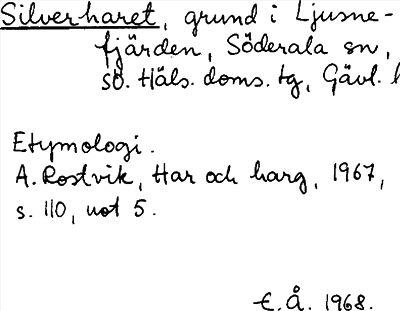 Silverharet, grund i Ljusne-
fjärden, Söderala sn,
sö. Häls. doms. tg, Gävl. l
Etymologi.
A. Rostvik, Har och harg, 1967,
s. 110, not 5.
E. Å. 1968.